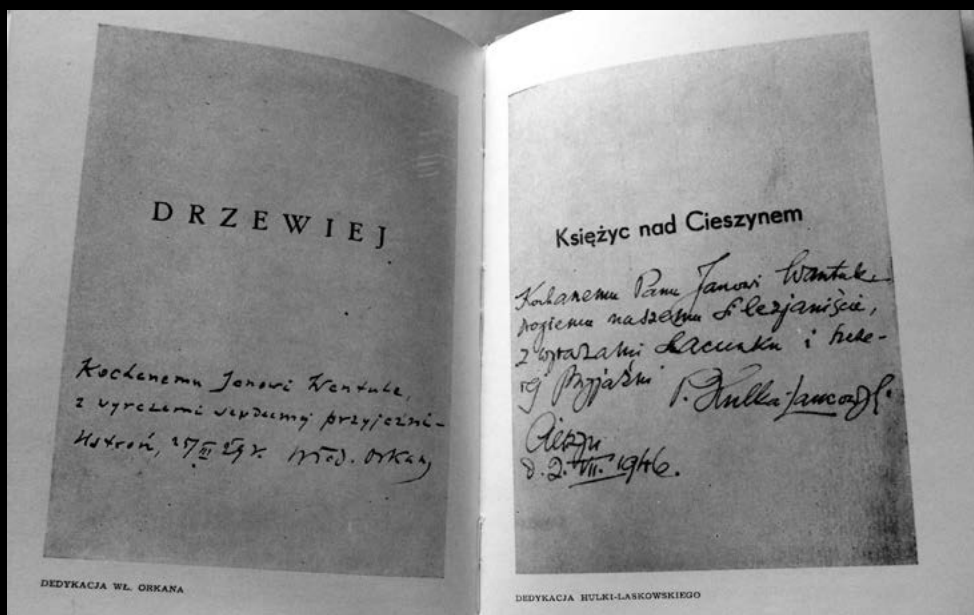 DRZEWIEJ
Kochanemu Janowi Wantule,
z wyrazami serdecznej przyjaźni –
Ustroń, 27/III 29 r. Wład. Orkan
DEDYKACJA WŁ. ORKANA
Księżyc nad Cieszynem
Kochanemu Panu Janowi Wantule,
drogiemu naszemu Silezjaniście,
z wyrazami szacunku i szcze-
rej przyjaźni
P. Hulka-Laskowski.
Cieszyn
d. 2. VII. 1946.
DEDYKACJA HULKI-LASKOWSKIEGO